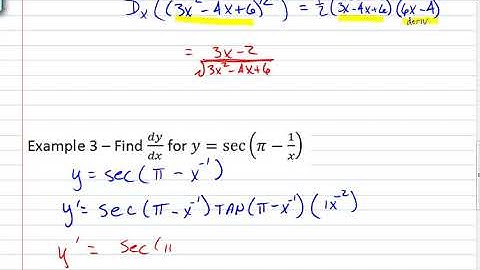 Dₓ((3x² - 4x + 6)^½) = ½(3x - 4x + 6)(6x - 4)
deriv
= (3x - 2)/√(3x² - 4x + 6)
Example 3 – Find dy/dx for y = sec(π − 1/x)
y = sec(π - x⁻¹)
y' = sec(π - x⁻¹) TAN(π - x⁻¹)(1x⁻²)
y' = sec(π